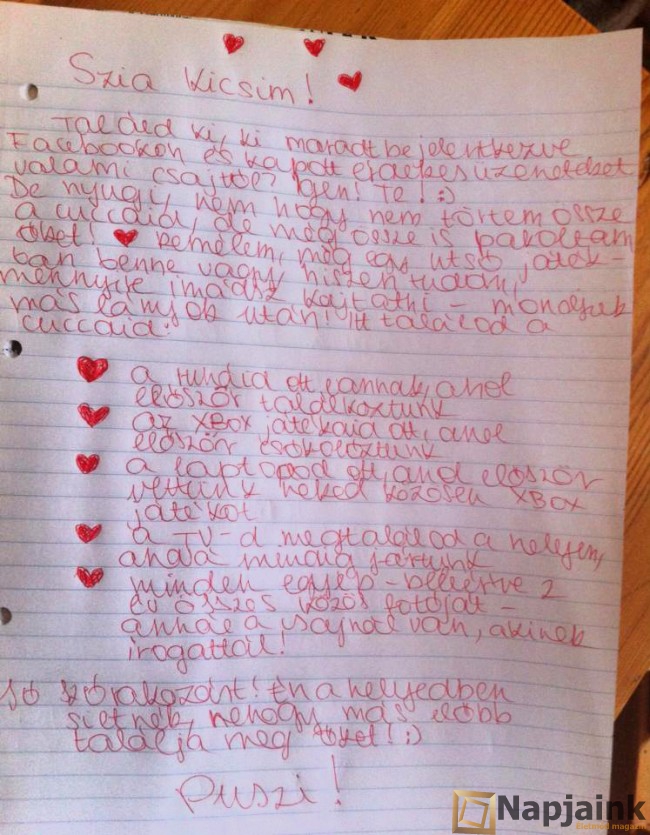 Szia Kicsim!
Találd ki, ki maradt bejelentkezve
Facebookon és kapott érdekes üzeneteket
valami csajtól? Igen! Te! :)
De nyugi, nem hogy nem törtem össze
a cuccaid, de még össze is pakoltam
őket! Remélem, még egy utsó játék-
ban benne vagy, hiszen tudom,
mennyire imádsz kajtatni - mondjuk
más lányok után! Itt találod a
cuccaid:
a ruháid ott vannak, ahol
először találkoztunk
az XBox játékaid ott, ahol
először csókolóztunk
a laptopod ott, ahol először
vettünk neked közösen XBox
játékot
a TV-d megtalálod a helyen,
ahová mindig jártunk
minden egyéb - beleértve 2
év összes közös fotóját -
annál a csajnál van, akinek
írogattál!
Jó szórakozást! Én a helyedben
sietnék, nehogy más előbb
találja meg őket! ;)
Puszi!
Napjaink
Életmód magazin